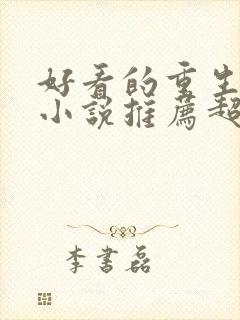 好看的重生
小说推薦超
李書磊